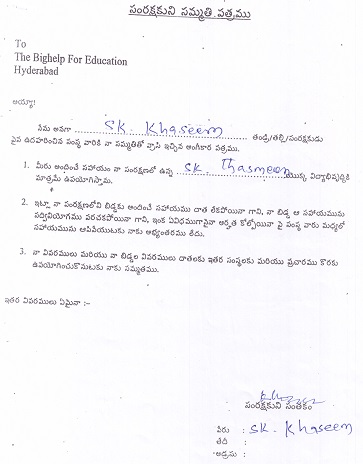 సంరక్షకుని సమ్మతి పత్రము
To
The Bighelp For Education
Hyderabad
అయ్యా!
నేను అనగా SK. Khaseem తండ్రి/తల్లి/సంరక్షకుడు
పైన ఉదహరించిన సంస్థ వారికి నా సమ్మతితో వ్రాసి ఇచ్చిన అంగీకార పత్రము.
1. మీరు అందించే సహాయం నా సంరక్షణలో ఉన్న SK. Thasneem యొక్క విద్యాభివృద్ధికి
మాత్రమే ఉపయోగిస్తాను.
2. ఇట్లా నా సంరక్షణలోని బిడ్డకు అందించే సహాయము దాత లేకపోయినా గాని, నా బిడ్డ ఆ సహాయమును
సద్వినియోగము పరచకపోయినా గాని, ఇంక ఏవిధముగానైనా అర్హత కోల్పోయినా పై సంస్థ వారు మధ్యలో
సహాయమును ఆపివేయుటకు నాకు అభ్యంతరము లేదు.
3. నా వివరములు మరియు నా బిడ్డల వివరములు దాతలకు ఇతర సంస్థలకు మరియు ప్రచారము కొరకు
ఉపయోగించుకొనుటకు నాకు సమ్మతము.
ఇతర వివరములు ఏమైనా :-
సంరక్షకుని సంతకం
పేరు : SK. Khaseem
తేదీ :
అడ్రసు :